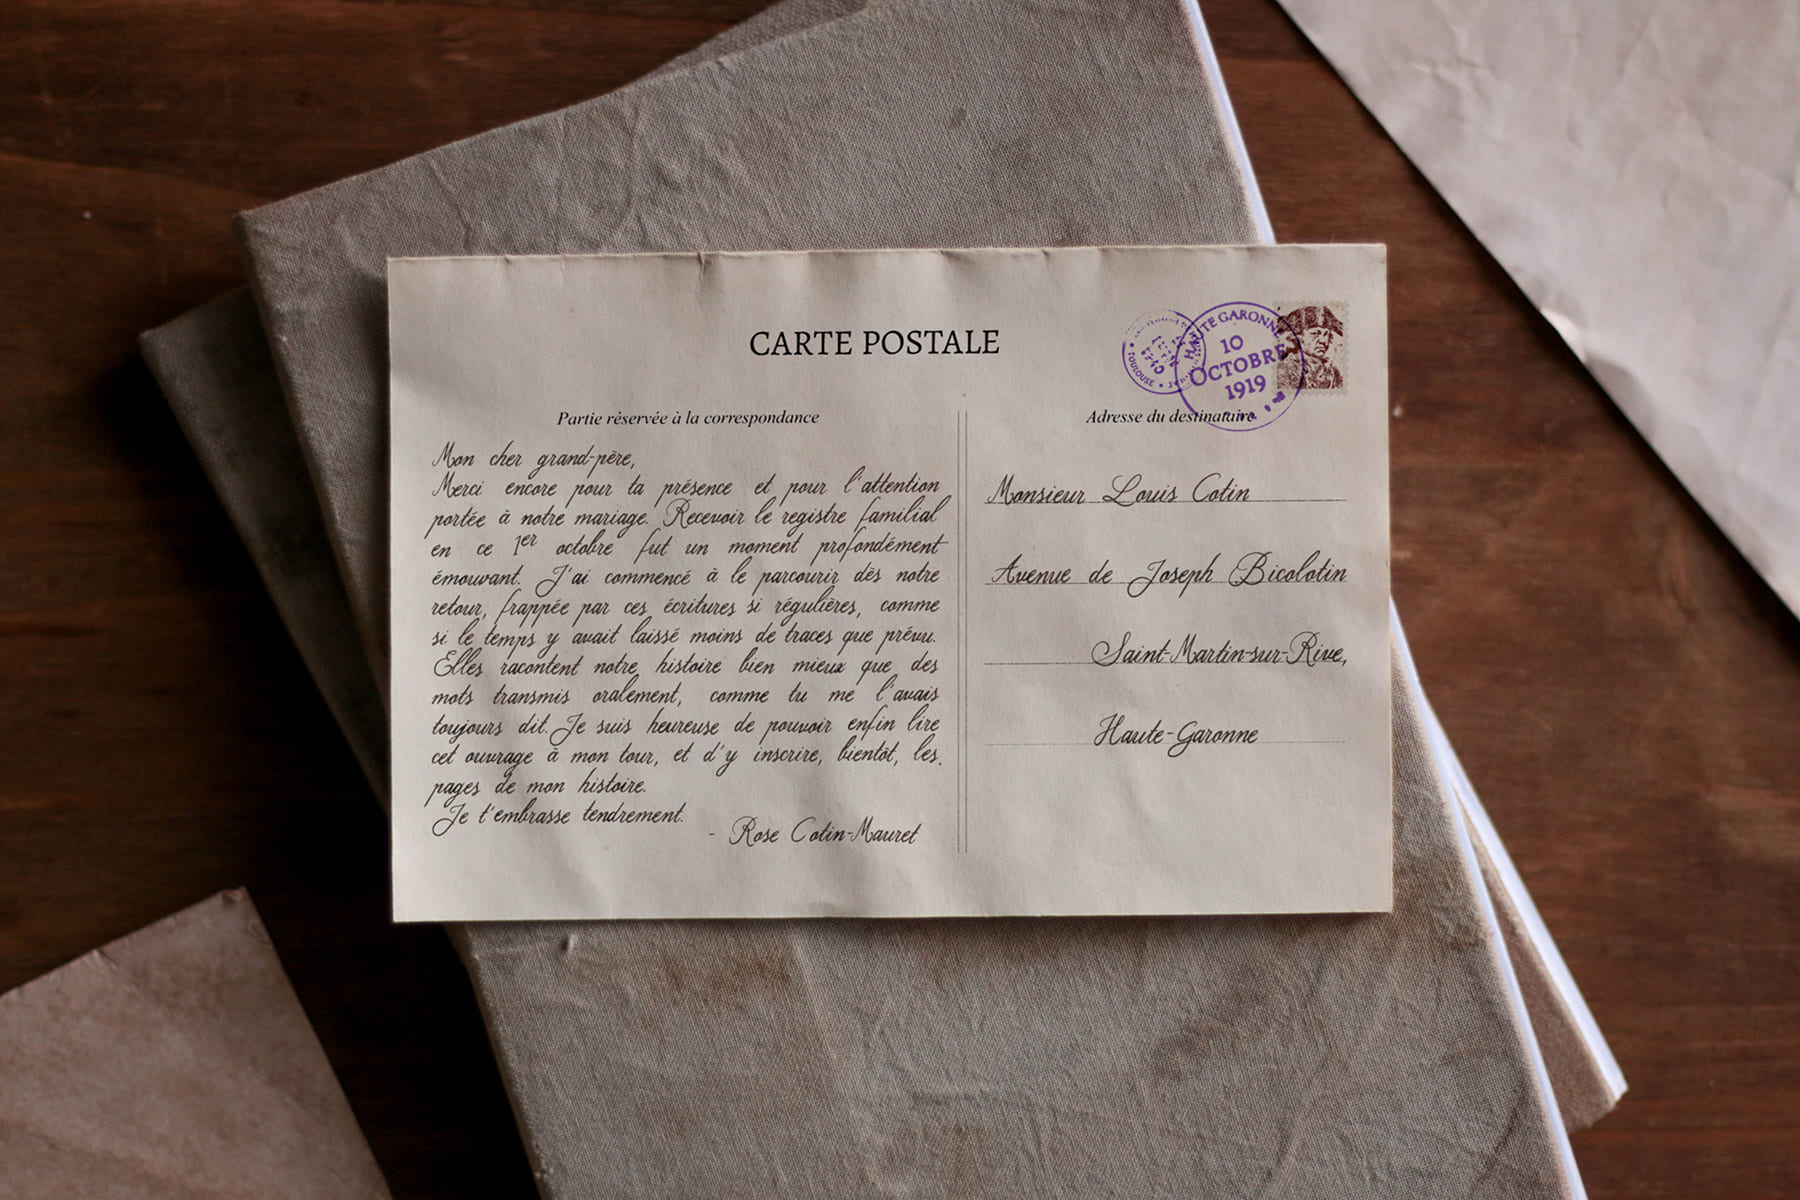 CARTE POSTALE
HAUTE GARONNE
10
OCTOBRE
1919
TOULOUSE
Partie réservée à la correspondance
Mon cher grand-père,
Merci encore pour ta présence et pour l'attention
portée à notre mariage. Recevoir le registre familial
en ce 1er octobre fut un moment profondément
émouvant. J'ai commencé à le parcourir dès notre
retour, frappée par ces écritures si régulières, comme
si le temps y avait laissé moins de traces que prévu.
Elles racontent notre histoire bien mieux que des
mots transmis oralement, comme tu me l'avais
toujours dit. Je suis heureuse de pouvoir enfin lire
cet ouvrage à mon tour, et d'y inscrire, bientôt, les
pages de mon histoire.
Je t'embrasse tendrement.
- Rose Cotin-Mauret
Adresse du destinataire
Monsieur Louis Cotin
Avenue de Joseph Bicolotin
Saint-Martin-sur-Rive,
Haute-Garonne